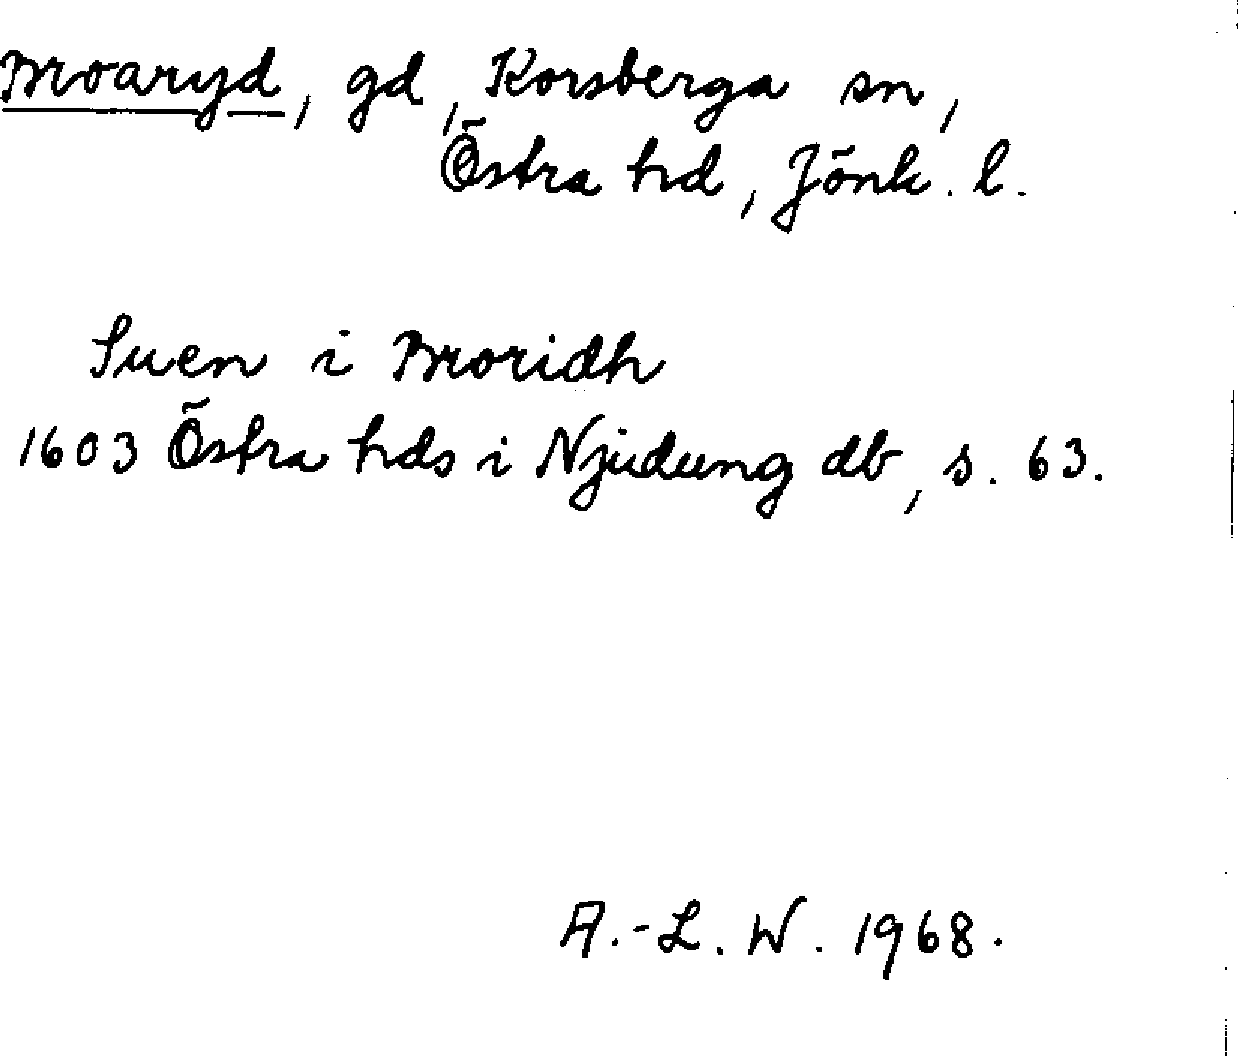 Moaryd, gd, Korsberga sn,
Östra hd, Jönk. l.
Suen i Moridh
1603 Östra hds i Njudung db, s. 63.
A.-L. W. 1968.